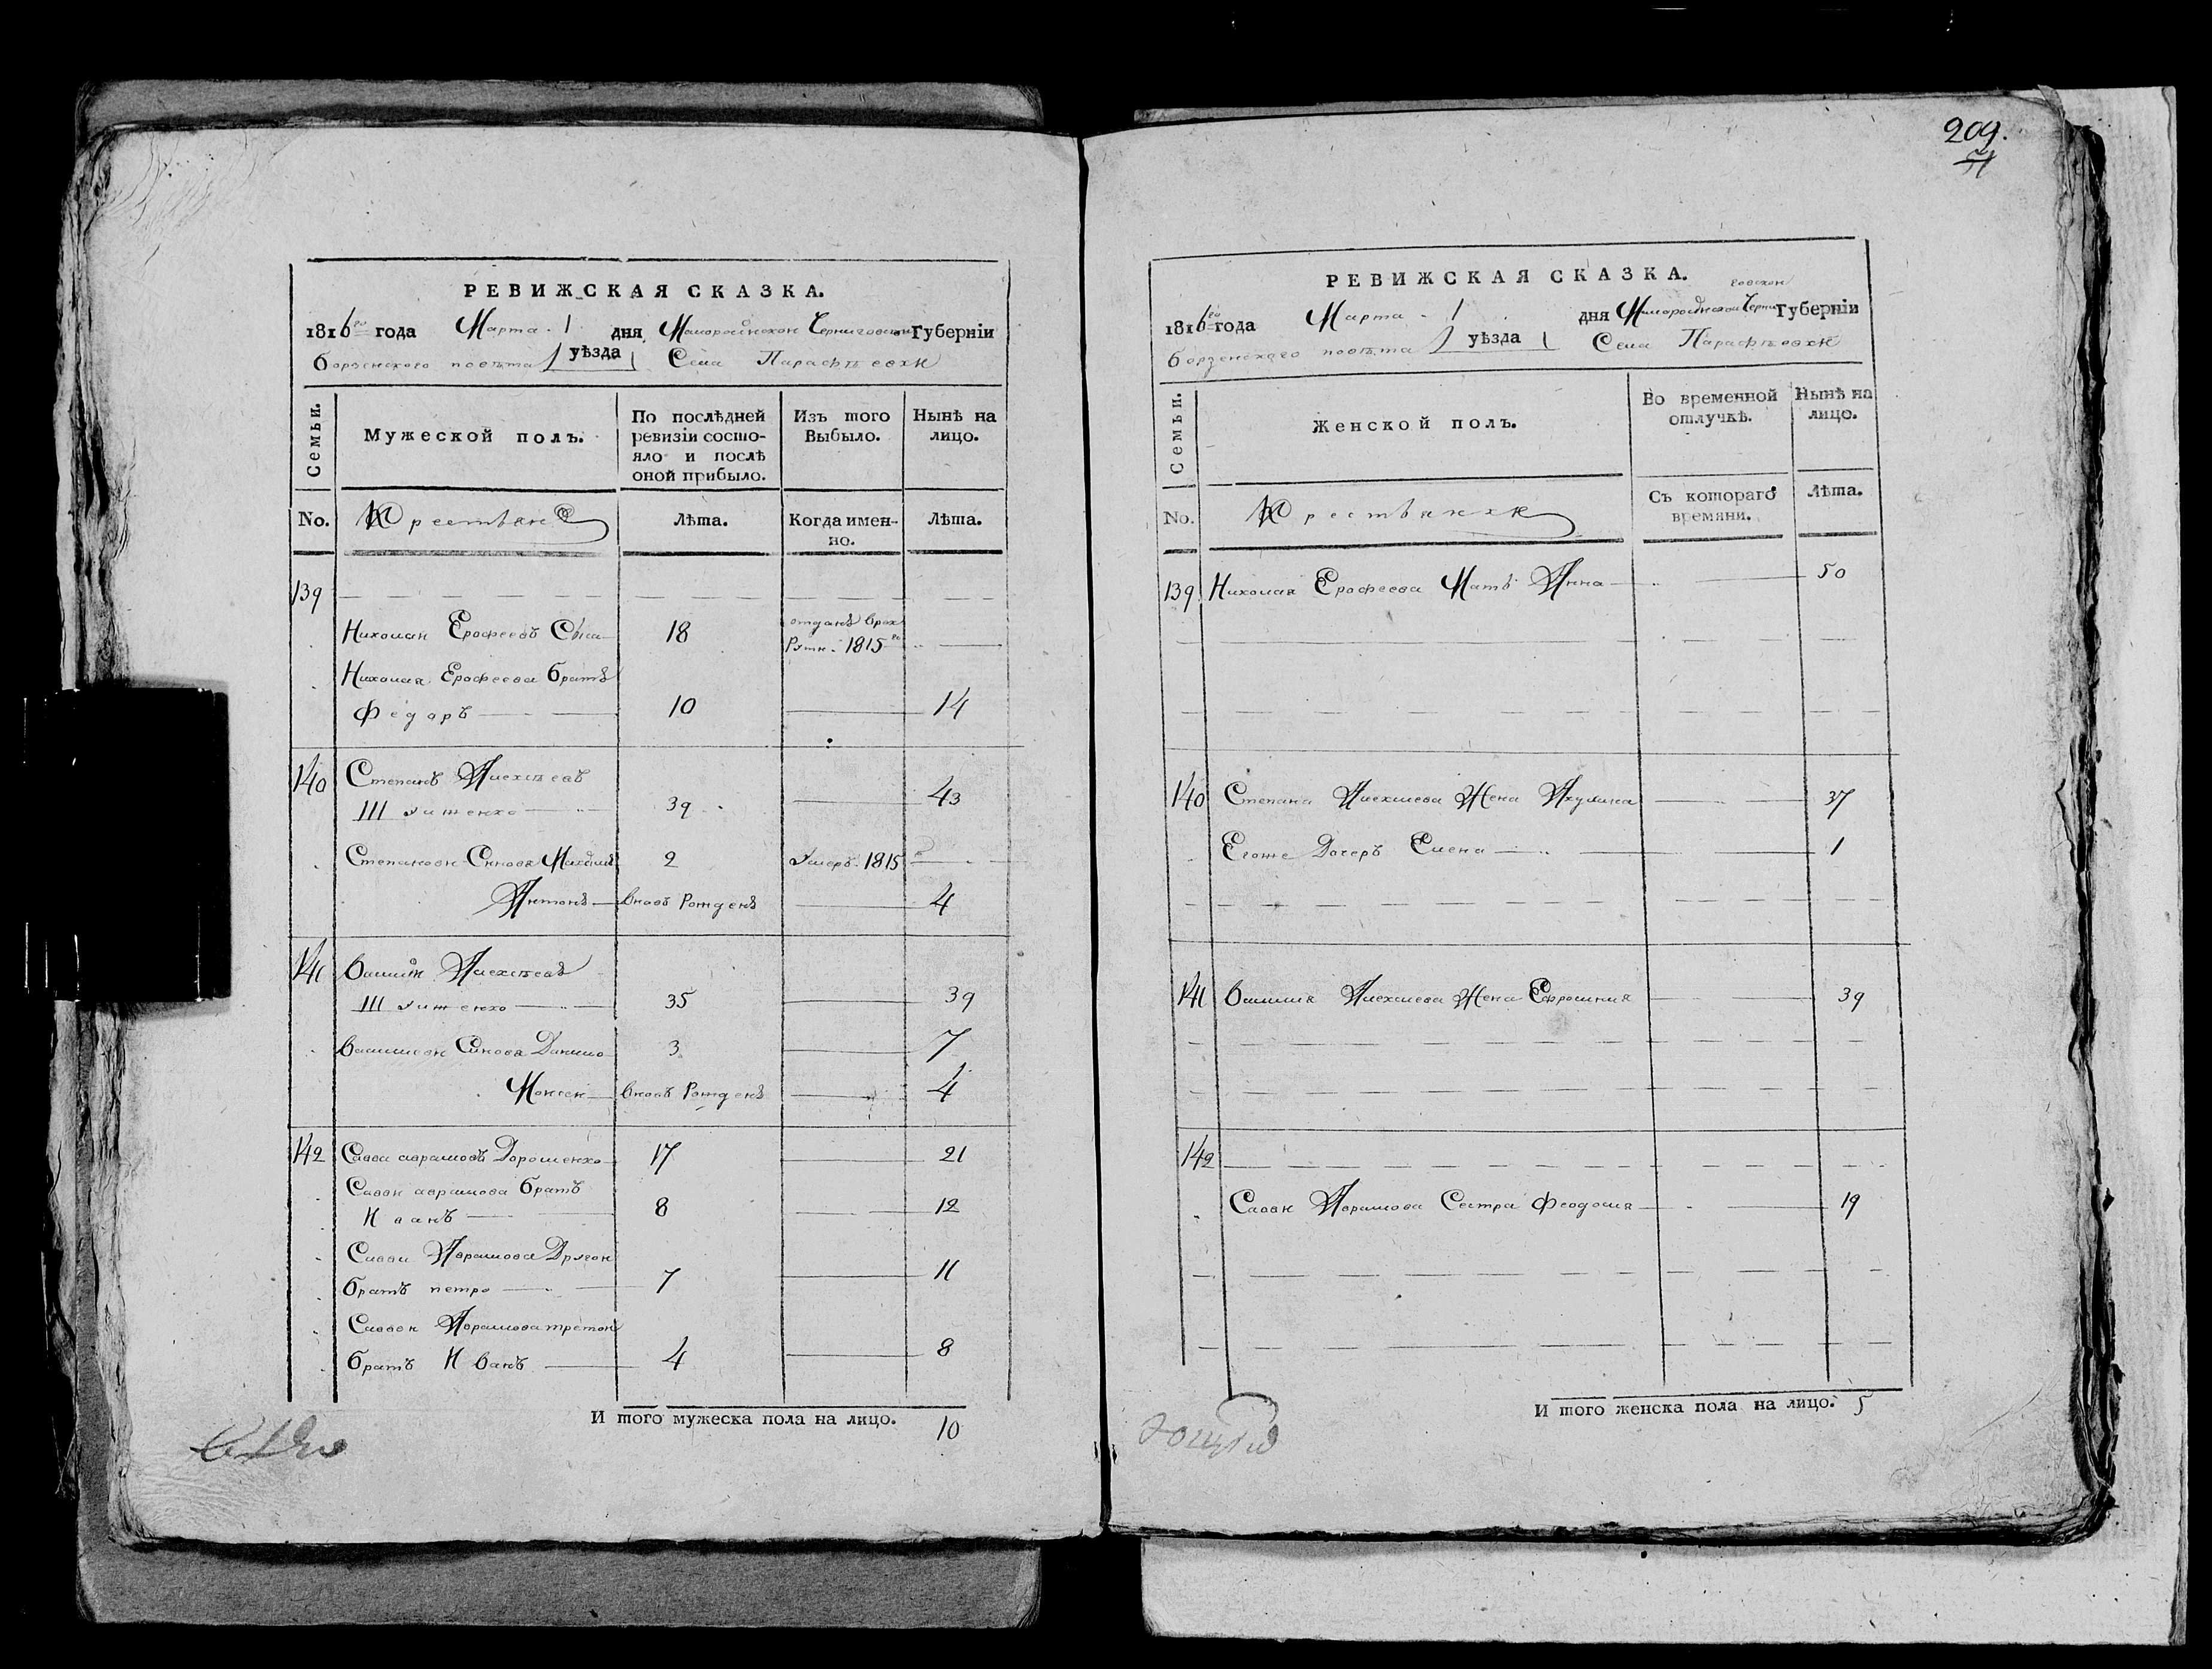 РЕВИЖСКАЯ СКАЗКА.
1816го года Марта 1 дня Малоросійской Черниговской Губерніи
борзенского повѣта уѣзда Села Парафѣевки
Семьи.
Мужеской полъ.
По послѣдней ревизіи состо-
яло и послѣ
оной прибыло.
Изъ того
Выбыло.
Нынѣ на
лицо.
No.
Крестьяне
Лѣта.
Когда имен-
но.
Лѣта.
139
Николай Ерофеевъ 18 отданъ врек
Руты. 1815го
Николая Ерофеева братъ
Федаръ 10 14
140 Степанъ Алексѣевъ
39 43
Степановы Синовя 2 Умеръ. 1815
Антонъ вновь Рожденъ 4
141 Василѣй Алексѣевъ
35 39
Василиевы Синовя Данило 3 7
Моисей вновь Рожденъ 4
142 Савва аврамовъ Дорошенко 17 21
Саввы аврамова братъ
Иванъ 8 12
Саввы Аврамова Другой
братъ петро 7 11
Саввы Аврамова третой
братъ Иванъ 4 8
И того мужеска пола на лицо. 10
209.
РЕВИЖСКАЯ СКАЗКА.
1816го года Марта 1 дня Малоросійской Черниговской Губерніи
борзенского повѣта уѣзда Села Парафѣевки
Семьи.
Женской полъ.
Во временной
отлучкѣ.
Нынѣ на
лицо.
No.
Крестьянки
Съ котораго
времяни.
Лѣта.
139 Николая Ерофеева Мать Анна 50
140 Степана Алексиева Жена Акулина 37
Егоже Дочеръ Елена 1
141 Василия Алексиева Жена Ефросиния 39
142
Саввы Аврамова Сестра Феодосия 19
И того женска пола на лицо. 5